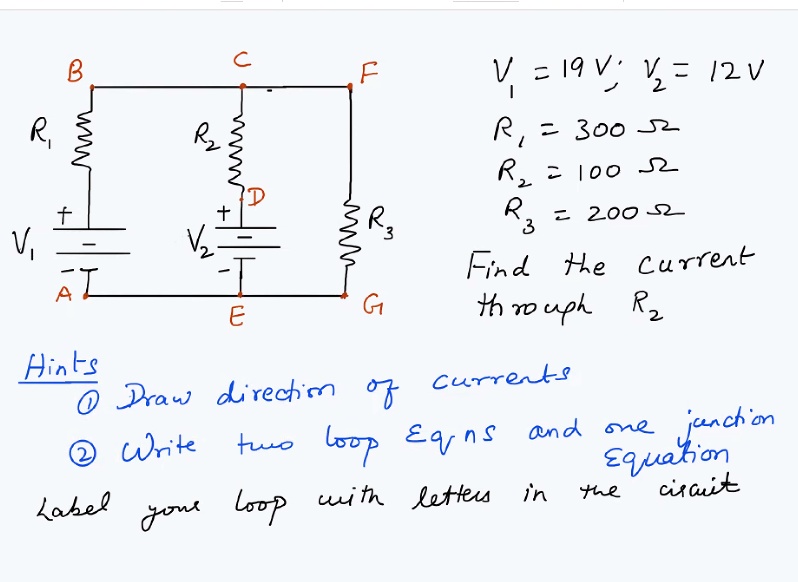 B C F
V₁ = 19 V; V₂ = 12 V
R₁ R₂
R₁ = 300 Ω
R₂ = 100 Ω
+ D
+ R₃
R₃ = 200 Ω
V₁ - V₂ -
Find the current
- -
A E G
through R₂
Hints
① Draw direction of currents
② Write two loop Eqns and one junction
Equation
Label your loop with letters in the circuit